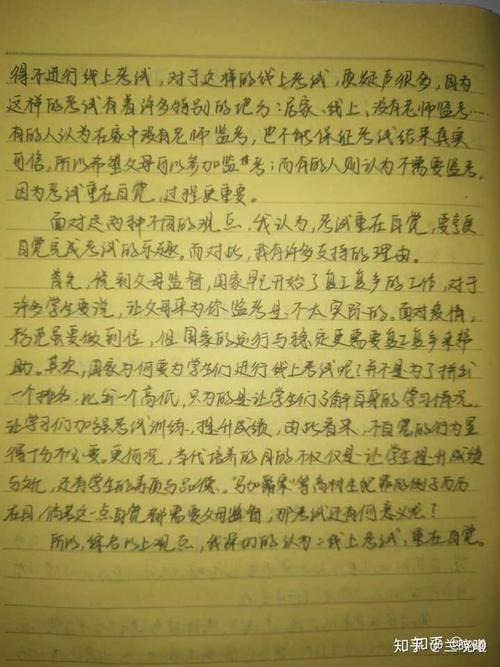 得不进行线上考试，对于这样的线上考试，质疑声很多，因为
这样的考试有着许多特别的地方：居家、线上、没有老师监考…
有的人认为在家中没有老师监考，也不能保证考试结果真实
可信，所以希望父母可以参加监考；而有的人则认为不需要监考，
因为考试重在自觉，过程更重要。
面对这两种不同的观点，我认为，考试重在自觉，要享受
自觉完成考试的乐趣。而对此，我有许多支持的理由。
首先，谈到父母监督，国家早已开始了复工复产的工作，对于
许多学生来说，让父母来为你监考是不太实际的。面对疫情，
防范虽要做到位，但国家的运行与稳定更需要复工复产来帮
助。其次，国家为何要为学生们进行线上考试呢？并不是为了拼出
一个排名，比出一个高低，只为的是让学生们了解自身的学习情况，
让学习们加强考试训练，提升成绩，由此看来，不自觉的行为显
得十分不必要。更何况，当代培养的目的不仅仅是让学生提升成绩
与文化，还有学生的素质与品德。"马加爵案"等高材生犯罪的例子历历
在目，倘若这一点自觉都需要父母监督，那考试还有何意义呢？
所以，综合以上观点，我深切的认为：线上考试，重在自觉。
知乎 @兰晓曦